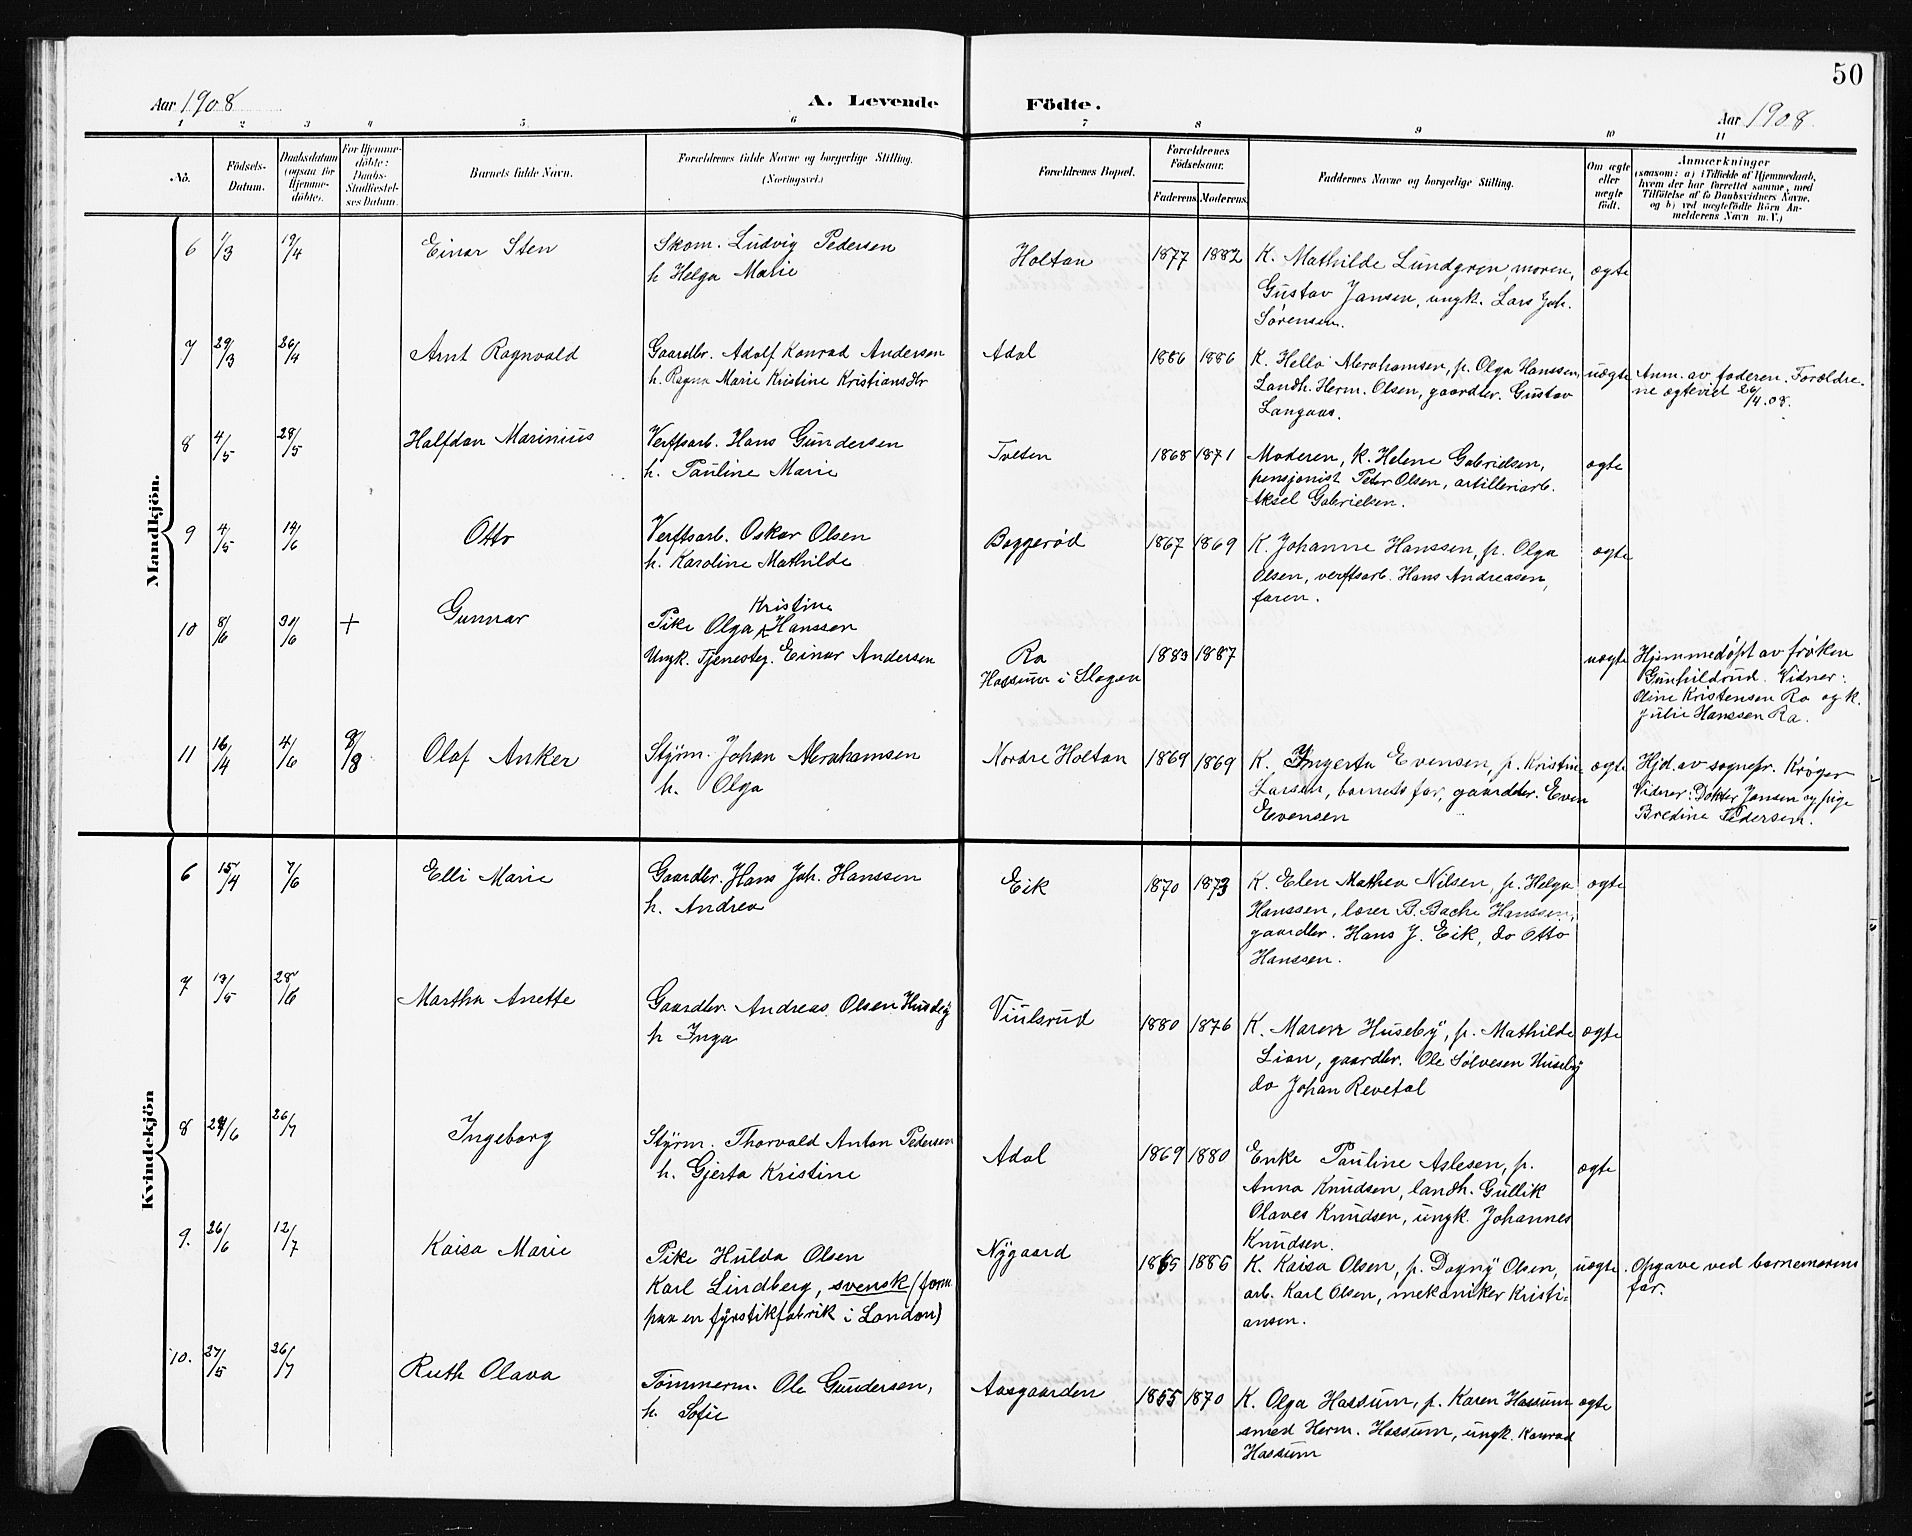 50
Aar 1908 A. Levende Födte. Aar 1908.
1 2 3 4 5 6 7 8 9 10 11
No. Födsels-Datum. Daabsdatum (ogsaa for Hjemme-döbte). For Hjemme-döbte: Daabs-Stadfæstel-ses Datum. Barnets fulde Navn. Forældrenes fulde Navne og borgerlige Stilling. (Næringsvei.) Forældrenes Bopæl. Forældrenes Födselsaar. Faderens Moderens. Faddernes Navne og borgerlige Stilling. Om ægte eller uægte födt. Anmærkninger (saasom: a) i Tilfælde af Hjemmedaab, hvem der har forrettet samme, med Tilföielse af to Daabsvidners Navne, og b) ved uægtefödte Börn An-melderens Navn m. V.)
Mandkjön.
6 1/3 19/4 Einar Sten Skom. Ludvig Pedersen Holtan 1877 1882 K. Mathilde Lundgren, moren, ægte
h Helga Marie Gustav Jansen, ungk. Lars Joh.
Sørensen.
7 29/3 26/4 Arnt Ragnvald Gaardbr. Adolf Konrad Andersen Adal 1886 1886 K. Hella Abrahamsen, p. Olga Hanssen, uægte Anm. av faderen. Forældre-
h. Ragna Marie Kristine Kristians dtr Landh. Herm. Olsen, gaardbr. Gustav ne ægteviet 26/4.08.
Langaas.
8 4/5 28/5 Halfdan Marinius Verftsarb. Hans Gundersen Tveten 1868 1871 Moderen, k. Helene Gabrielsen, ægte
h. Pauline Marie pensjonist Peter Olsen, artilleriarb.
Aksel Gabrielsen.
9 4/5 14/6 Otto Verftsarb. Oskar Olsen Baggerød 1867 1869 K. Johanne Hanssen, p. Olga ægte
h. Karoline Mathilde Olsen, verftsarb. Hans Andreasen,
faren.
10 8/6 30/6 + Gunnar Pike Olga Kristine Hanssen Ra 1883 1887 uægte Hjemmedøpt av frøken
Ungk. Tjenesteg. Einar Andersen Hassum i Slagen Gunhildrud. Vidner:
Oline Kristensen Ra og k.
Julie Hanssen Ra.
11 16/4 4/6 9/8 Olaf Anker Styrm. Johan Abrahamsen Nordre Holtan 1869 1869 K. Ingerta Evensen, p. Kristine ægte Hjd. av sognepr. Krøger
h. Olga Larsen, barnets far, gaardbr. Even Vidner: Doktor Jansen og pige
Evensen Bredine Pedersen.
Kvindekjön
6 15/4 7/6 Elli Marie Gaardbr. Hans Joh. Hanssen Eik 1870 1873 K. Elen Mathea Nilsen, p. Helga ægte
h. Andrea Hanssen, lærer B. Bache Hanssen,
gaardbr. Hans J. Eik, do Otto
Hanssen.
7 13/5 28/6 Martha Anette Gaardbr. Andreas Olsen Huseby Viulsrud 1880 1876 K. Maren Huseby, p. Mathilde ægte
h Inga Lian, gaardbr. Ole Sølvesen Huseby
do Johan Revetal
8 29/6 26/7 Ingeborg Styrm. Thorvald Anton Pedersen Adal 1869 1880 Enke Pauline Aslesen, p. ægte
h. Gjerta Kristine Anna Knudsen, landh. Gullik
Olaves Knudsen, ungk. Johannes
Knudsen.
9. 26/6 12/7 Kaisa Marie Pike Hulda Olsen Nygaard 1865 1885 K. Kaisa Olsen, p. Dagny Olsen, uægte Opgave ved barnemorens
Karl Lindberg, svensk (form arb. Karl Olsen, mekaniker Kristi- far.
paa en fyrstikfabrik i London) ansen.
10. 27/5 26/7 Ruth Olava Tømmerm. Ole Gundersen, Aasgaarden 1865 1870 K. Olga Hassum, p. Karen Hassum ægte
h. Sofie smed Herm. Hassum, ungk. Konrad
Hassum